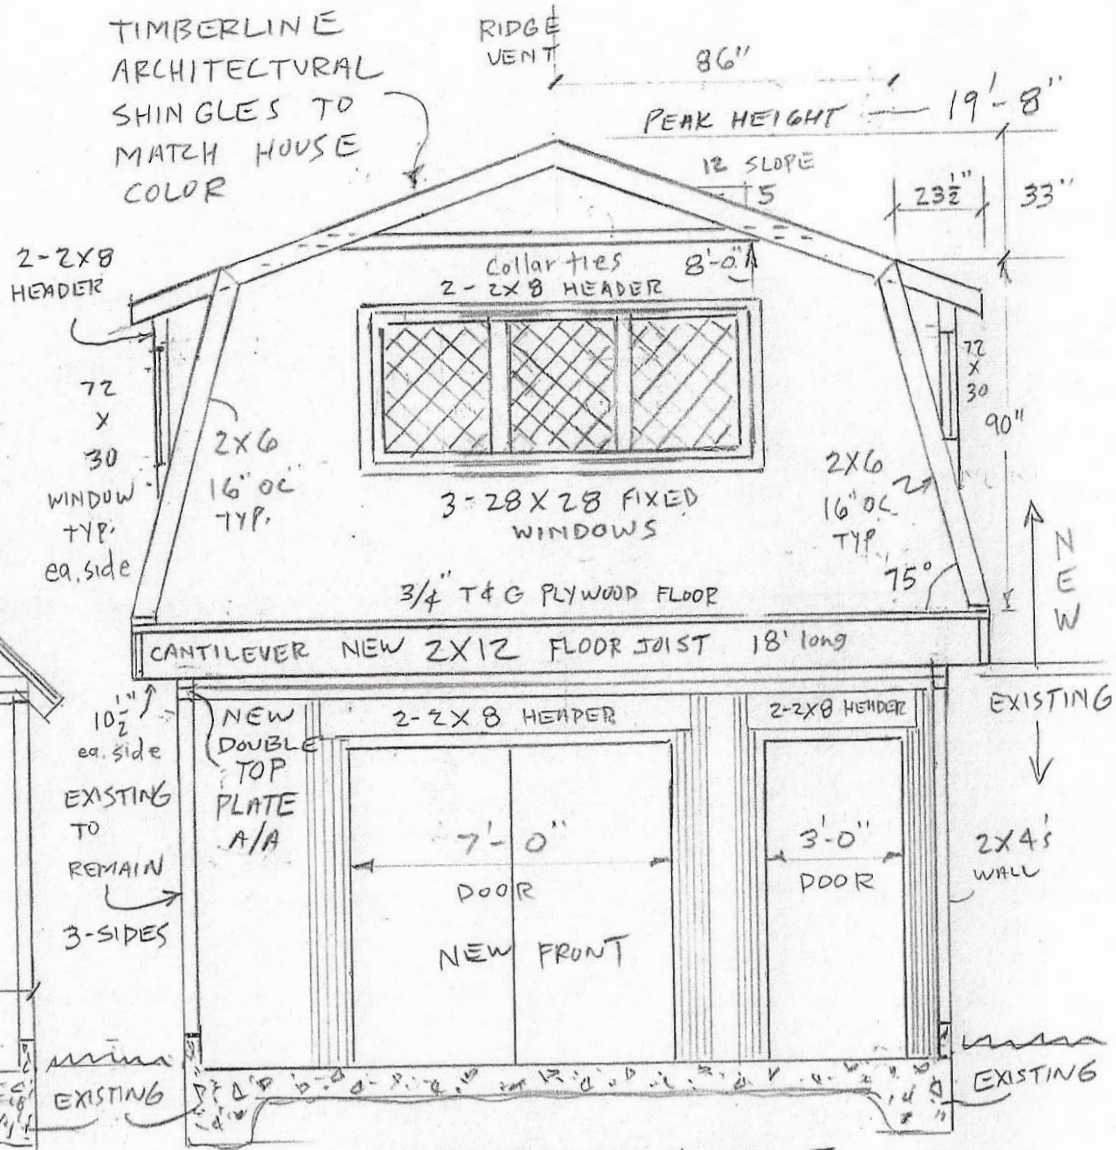 TIMBERLINE
ARCHITECTURAL
SHINGLES TO
MATCH HOUSE
COLOR
RIDGE
VENT
86"
PEAK HEIGHT
19'-8"
12 SLOPE
5
23½"
33"
2-2X8
HEADER
Collar ties
8'-0"
2-2X8 HEADER
72
X
30
WINDOW
TYP.
ea. side
2X6
16" OC
TYP.
3-28X28 FIXED
WINDOWS
72
X
30
90"
2X6
16" OC
TYP
75°
NEW
3/4" T&G PLYWOOD FLOOR
CANTILEVER NEW 2X12 FLOOR JOIST 18' long
10½"
ea. side
NEW
DOUBLE
TOP
PLATE
A/A
2-2X8 HEADER
2-2X8 HEADER
EXISTING
EXISTING
TO
REMAIN
3-SIDES
7'-0"
DOOR
3'-0"
DOOR
2X4's
WALL
NEW FRONT
EXISTING
EXISTING